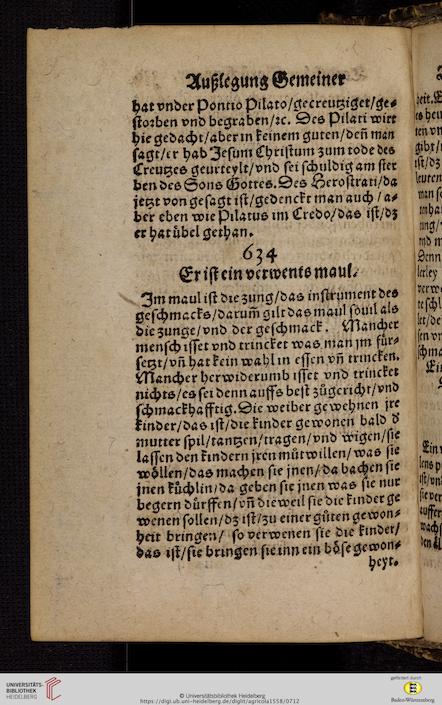 Außlegung Gemeiner
hat vnder Pontio Pilato/gecreutziget/ge⸗
storben vnd begraben/ꝛc. Des Pilati wirt
hie gedacht/aber in keinem guten/deñ man
sagt/er hab Jesum Christum zum tode des
Creutzes geurteylt/vnd sei schuldig am ster
ben des Sons Gottes. Des Herostrati/da
jetzt von gesagt ist/gedenckt man auch/a⸗
ber eben wie Pilatus im Credo/das ist/dz
er hat übel gethan.
634
Er ist ein verwents maul.
Im maul ist die zung/das instrument des
geschmacks/darum̃ gilt das maul souil als
die zunge/vnd der geschmack. Mancher
mensch isset vnd trincket was man jm für⸗
setzt/vñ hat kein wahl in essen vñ trincken.
Mancher herwiderumb isset vnd trincket
nichts/es sei denn auffs best zůgericht/vnd
schmackhafftig. Die weiber gewehnen jre
kinder/das ist/die kinder gewonen bald d
mutter spil/tantzen/tragen/vnd wigen/sie
lassen den kindern jren můtwillen/was sie
wöllen/das machen sie jnen/da bachen sie
jnen küchlin/da geben sie jnen was sie nur
begern dürffen/vñ dieweil sie die kinder ge
wenen sollen/dz ist/zu einer gůten gewon⸗
heit bringen/ so verwenen sie die kinder/
das ist/sie bringen sie inn ein böse gewon⸗
heyt.
UNIVERSITÄTS-
BIBLIOTHEK
HEIDELBERG
© Universitätsbibliothek Heidelberg
https://digi.ub.uni-heidelberg.de/diglit/agricola1558/0712
gefördert durch
Baden-Württemberg